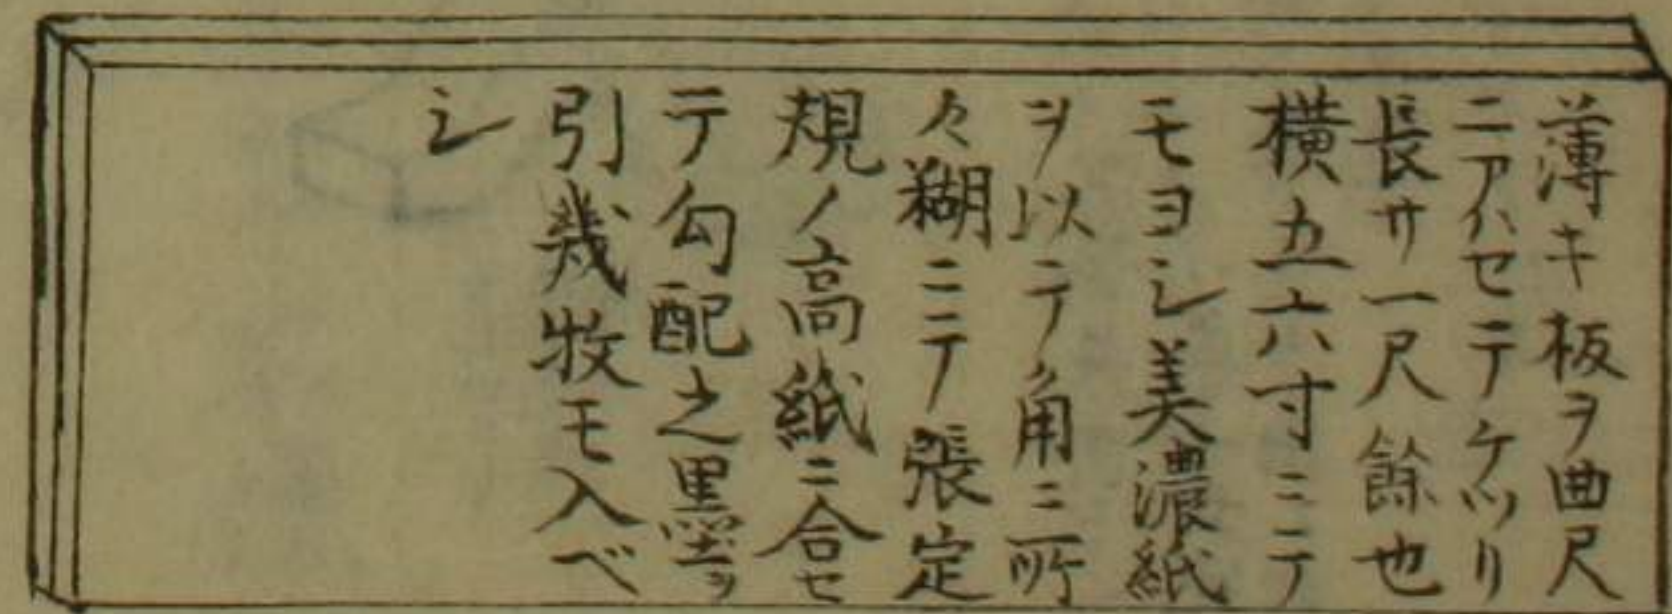 薄キ板ヲ曲尺
ニアハセテケツリ
長サ一尺餘也
横五六寸ニテ
モヨシ美濃紙
ヲ以テ角三所
々糊ニテ張定
規ノ高紙ニ合セ
テ勾配之墨ヲ
引幾牧モ入ベ
シ